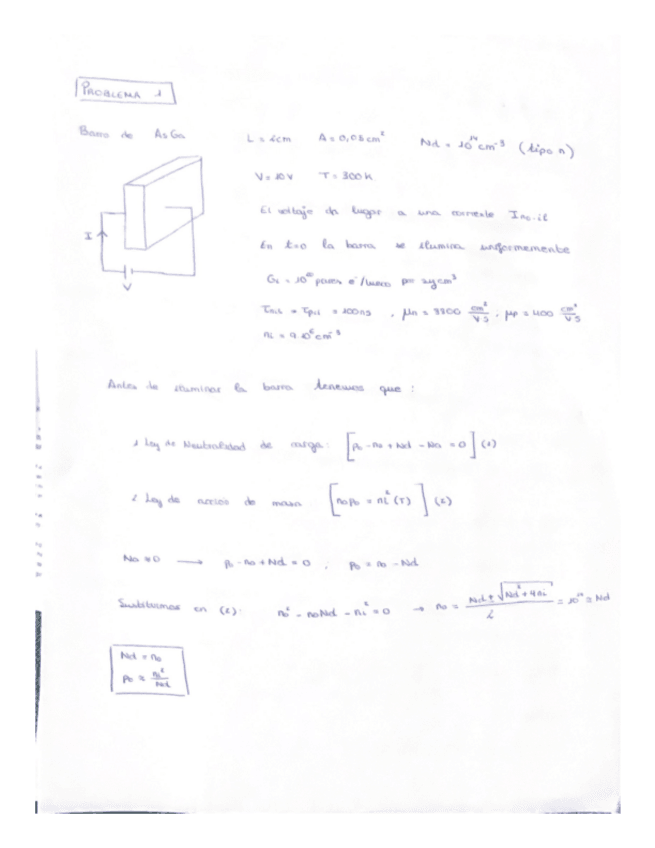 PROBLEMA 1
Barra de AsGa
L = 2cm A = 0,05 cm² Nd = 10¹⁴ cm⁻³ (tipo n)
V = 10V T = 300K
El voltaje da lugar a una corriente
En t=0 la barra se ilumina uniformemente
pares e⁻/hueco por s y cm³
= 100ns , μn = 8800 cm²/VS , μp = 400 cm²/VS
I
V
Antes de iluminar la barra tenemos que :
1 Ley de Neutralidad de carga : [p₀ - n₀ + Nd - Na = 0] (1)
2 Ley de acción de masa [n₀p₀ = ni²(T)] (2)
Na = 0 → p₀ - n₀ + Nd = 0 , p₀ = n₀ - Nd
Sustituimos en (2): n₀² - n₀Nd - ni² = 0 → n₀ = (Nd ± √(Nd² + 4ni²))/2 = 10¹⁴ ≈ Nd
Nd = n₀
p₀ ≈ ni²/Nd